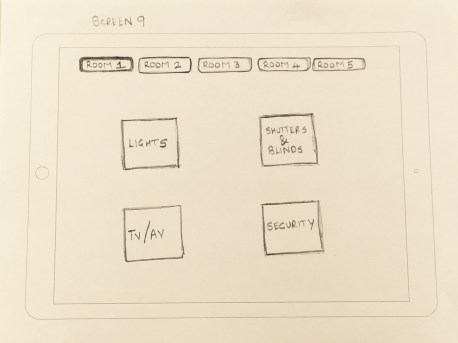 SCREEN 9
ROOM 1 ROOM 2 ROOM 3 ROOM 4 ROOM 5
LIGHTS
SHUTTERS
&
BLINDS
TV/AV
SECURITY